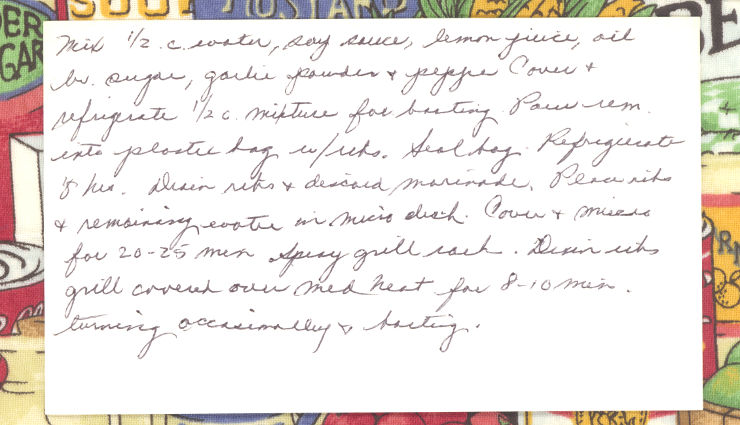 MUSTARD
DER
GAR
BE
Mix 1/2 c. water, soy sauce, lemon juice, oil
br. sugar, garlic powder & pepper Cover &
refrigerate 1/2 c. mixture for basting. Pour rem.
into plastic bag w/ribs. Seal bag. Refrigerate
8 hrs. Drain ribs & discard marinade. Place ribs
& remaining water in micro dish. Cover & micro
for 20-25 min Spray grill rack. Drain ribs
grill covered over med heat for 8-10 min.
turning occasionally & basting.